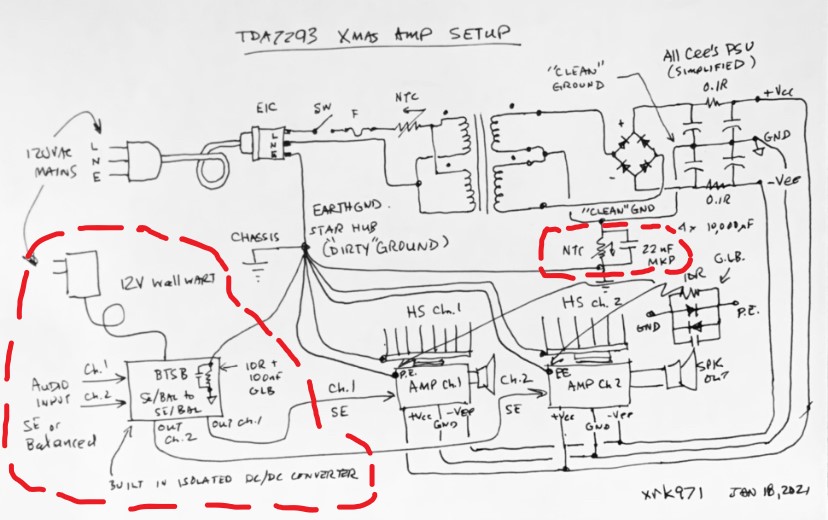 TDA7293 XMAS AMP SETUP
All Cee's PSU
(SIMPLIFIED)
"CLEAN"
GROUND
0.1R
+Vcc
EIC
SW
F
NTC
L
N
E
120VAC
MAINS
L
N
E
+
-
GND
-Vee
0.1R
EARTH GND.
STAR HUB
("DIRTY" GROUND)
CHASSIS
"CLEAN" GND
4x 10,000uF
NTC
22nF
MKP
G.L.B.
10R
GND
P.E.
12V wall WART
HS Ch.1
HS Ch.2
SPK
OUT
Ch.1
AUDIO
INPUT
Ch.2
SE or
Balanced
BTSB
SE/BAL to
SE/BAL
10R +
100nF
GLB
OUT
Ch.2
OUT Ch.1
Ch.1
SE
P.E.
AMP Ch.1
+Vcc
GND
-Vee
Ch.2
SE
PE
AMP Ch2
+Vcc
GND
-Vee
BUILT IN ISOLATED DC/DC CONVERTER
xrk971 JAN 18, 2021